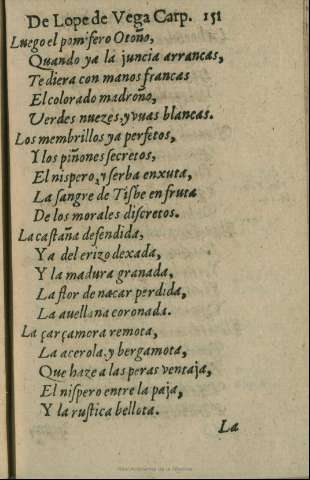 De Lope de Vega Carp. 151
Luego el pomifero Otoño,
Quando ya la juncia arrancas,
Te diera con manos francas
El colorado madroño,
Verdes nuezes, y vuas blancas.
Los membrillos ya perfetos,
Y los piñones secretos,
El nispero, y serba enxuta,
La sangre de Tisbe en fruta
De los morales discretos.
La castaña defendida,
Ya del erizo dexada,
Y la madura granada,
La flor de nacar perdida,
La auellana coronada.
La çarçamora remota,
La acerola, y bergamota,
Que haze a las peras ventaja,
El nispero entre la paja,
Y la rustica bellota.
La